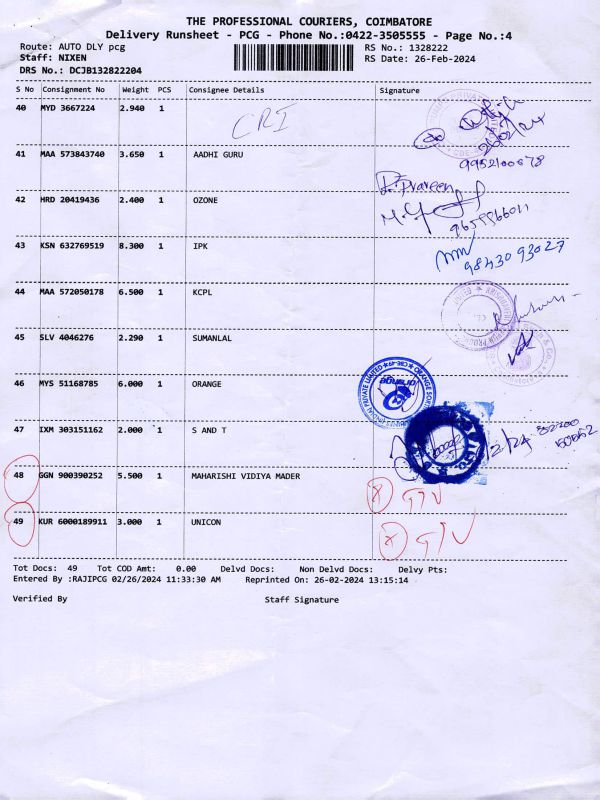 THE PROFESSIONAL COURIERS, COIMBATORE
Delivery Runsheet - PCG - Phone No.:0422-3505555 - Page No.:4
Route: AUTO DLY pcg RS No.: 1328222
Staff: NIXEN RS Date: 26-Feb-2024
DRS No.: DCJB132822204
S No Consignment No Weight PCS Consignee Details Signature
40 MYD 3667224 2.940 1 CRI
26/02/24
41 MAA 573843740 3.650 1 AADHI GURU
9952100678
42 HRD 20419436 2.400 1 OZONE
R. Praveen
9655866011
43 KSN 632769519 8.300 1 IPK
98430 93027
44 MAA 572050178 6.500 1 KCPL
45 SLV 4046276 2.290 1 SUMANLAL
46 MYS 51168785 6.000 1 ORANGE
orange
47 IXM 303151162 2.000 1 S AND T
48 GGN 900390252 5.500 1 MAHARISHI VIDIYA MADER
49 KUR 6000189911 3.000 1 UNICON
Tot Docs: 49 Tot COD Amt: 0.00 Delvd Docs: Non Delvd Docs: Delvy Pts:
Entered By :RAJIPCG 02/26/2024 11:33:30 AM Reprinted On: 26-02-2024 13:15:14
Verified By Staff Signature